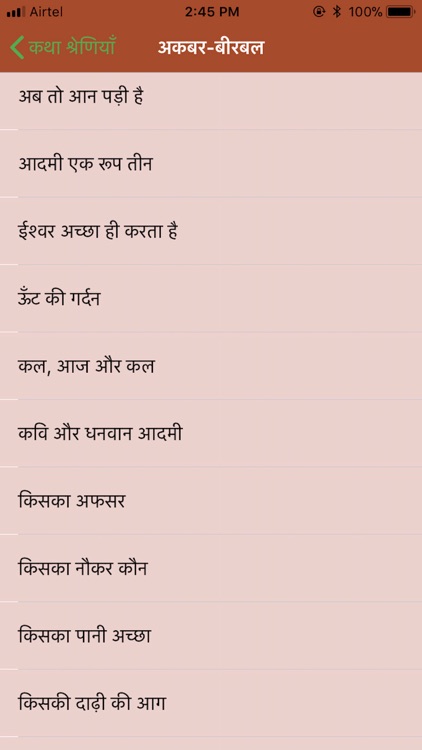 Airtel 2:45 PM 100%
कथा श्रेणियाँ अकबर-बीरबल
अब तो आन पड़ी है
आदमी एक रूप तीन
ईश्वर अच्छा ही करता है
ऊँट की गर्दन
कल, आज और कल
कवि और धनवान आदमी
किसका अफसर
किसका नौकर कौन
किसका पानी अच्छा
किसकी दाढ़ी की आग